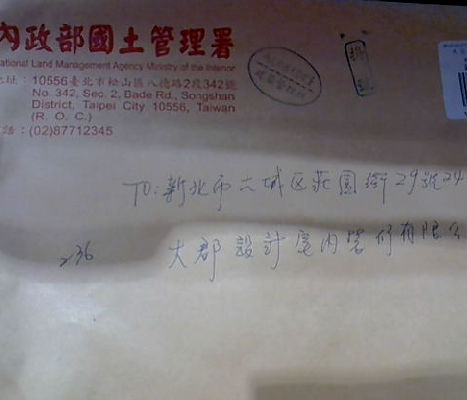 內政部國土管理署
ational Land Management Agency Ministry of the Interior
址：10556臺北市松山區八德路2段342號
No. 342, Sec. 2, Bade Rd., Songshan
District, Taipei City 10556, Taiwan
(R. O. C.)
話：(02)87712345
TO: 新北市土城区莊園街29號24
236 大郡設計室内裝修有限公